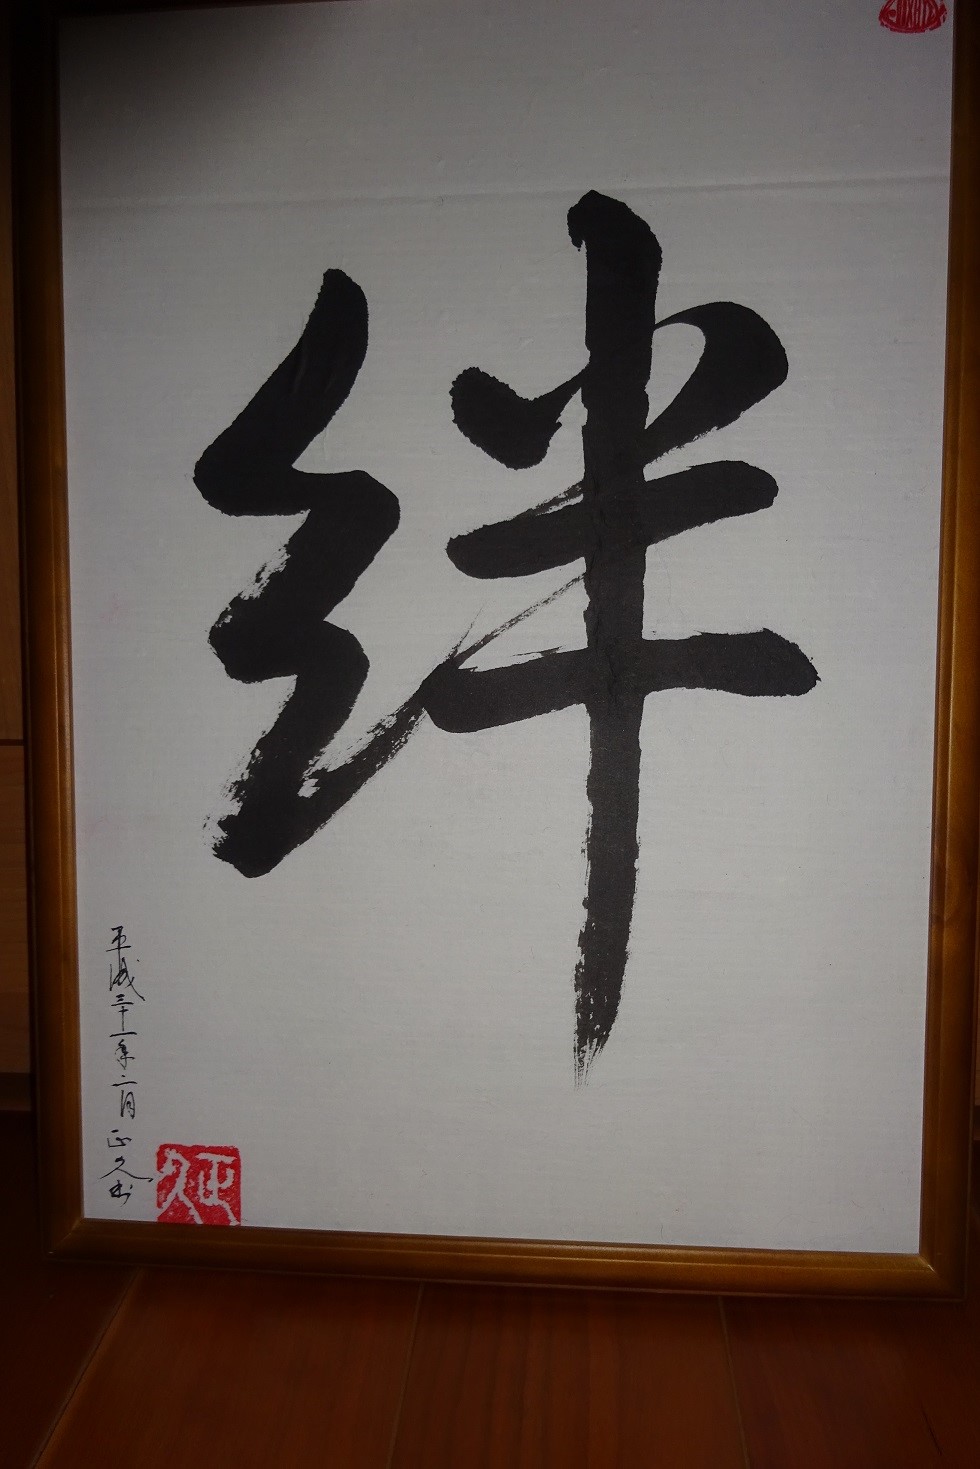 絆
平成三十一年二月 正久書
正久